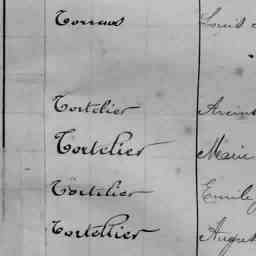 Torraux Louis
Tortelier
Tortelier Marie
Tortelier Emile
Tortellier August